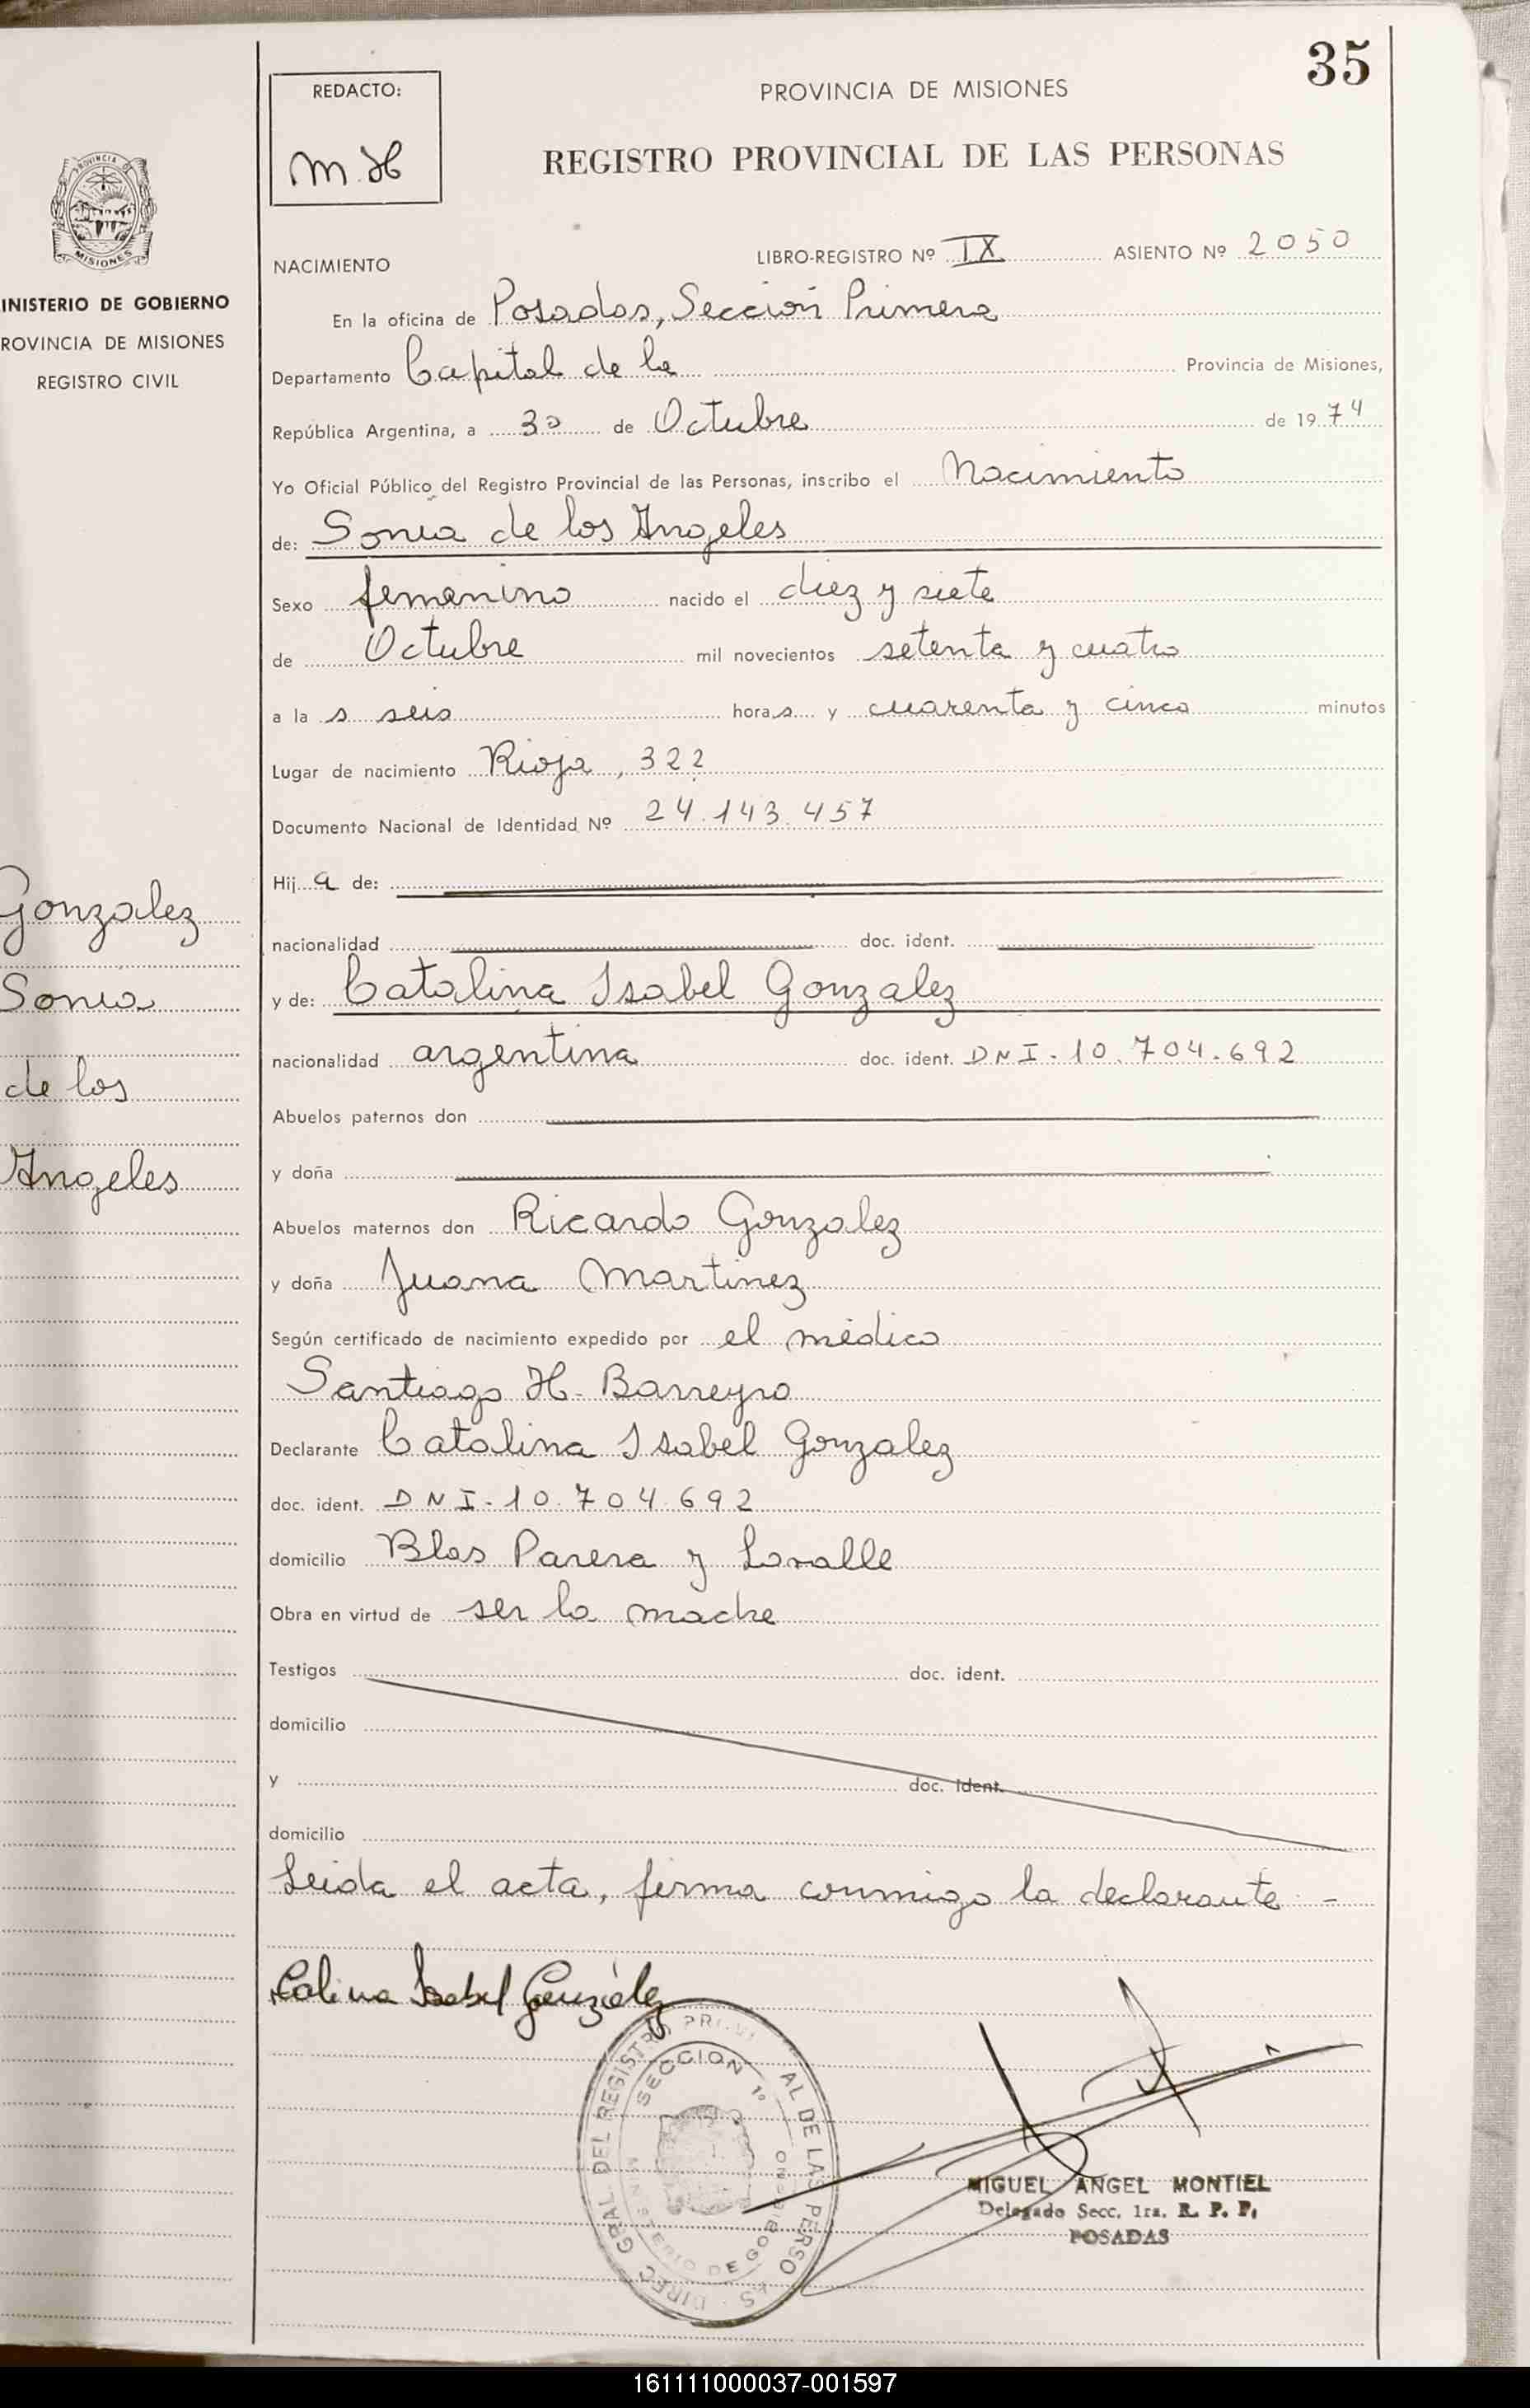 35
REDACTO:
M. H
PROVINCIA DE MISIONES
REGISTRO PROVINCIAL DE LAS PERSONAS
PROVINCIA DE
MISIONES
INISTERIO DE GOBIERNO
ROVINCIA DE MISIONES
REGISTRO CIVIL
NACIMIENTO
LIBRO-REGISTRO Nº IX ASIENTO Nº 2050
En la oficina de Posadas, Sección Primera
Departamento Capital de la Provincia de Misiones,
República Argentina, a 30 de Octubre de 1974
Yo Oficial Público del Registro Provincial de las Personas, inscribo el Nacimiento
de: Sonia de los Angeles
Sexo femenino nacido el diez y siete
de Octubre mil novecientos setenta y cuatro
a la s seis horas y cuarenta y cinco minutos
Lugar de nacimiento Rioja, 322
Documento Nacional de Identidad Nº 24.143.457
Hija de:
nacionalidad doc. ident.
y de: Catalina Isabel Gonzalez
nacionalidad argentina doc. ident. DNI-10.704.692
Abuelos paternos don
y doña
Abuelos maternos don Ricardo Gonzalez
y doña Juana Martinez
Según certificado de nacimiento expedido por el médico
Santiago H. Barreyro
Declarante Catalina Isabel Gonzalez
doc. ident. DNI-10.704.692
domicilio Blas Parera y Lavalle
Obra en virtud de ser la madre
Testigos doc. ident.
domicilio
y doc. ident.
domicilio
Leida el acta, firma conmigo la declarante.-
Gonzalez
Sonia
de los
Angeles
Calina Isabel González
SECCION 1º
MIGUEL ANGEL MONTIEL
Delegado Secc. 1ra. R. P. P.
POSADAS
161111000037-001597